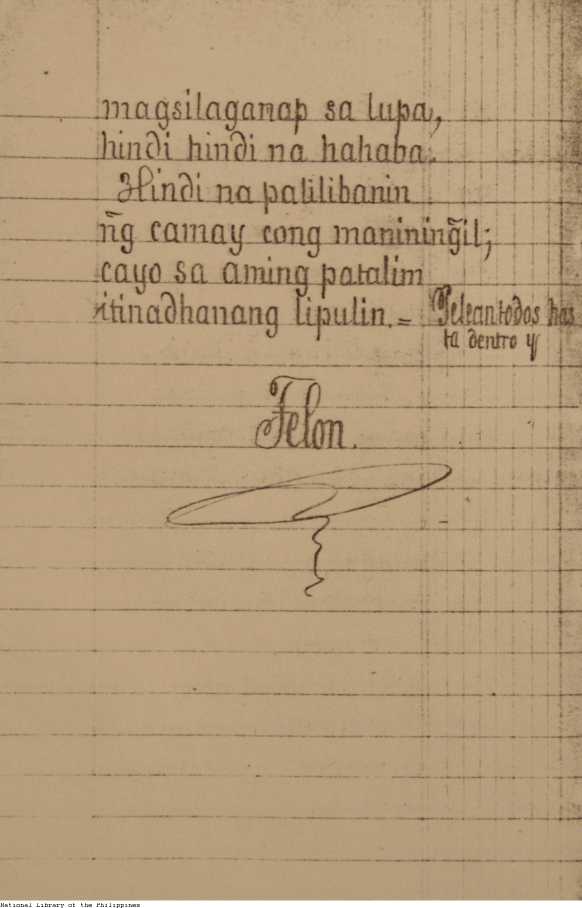 magsilaganap sa lupa,
hindi hindi na hahaba.
Hindi na palilibanin
n͠g camay cong maninin͠gil;
cayo sa aming patalim
itinadhanang lipulin. = Pelean todos has
ta dentro y
Felon.
National Library of the Philippines